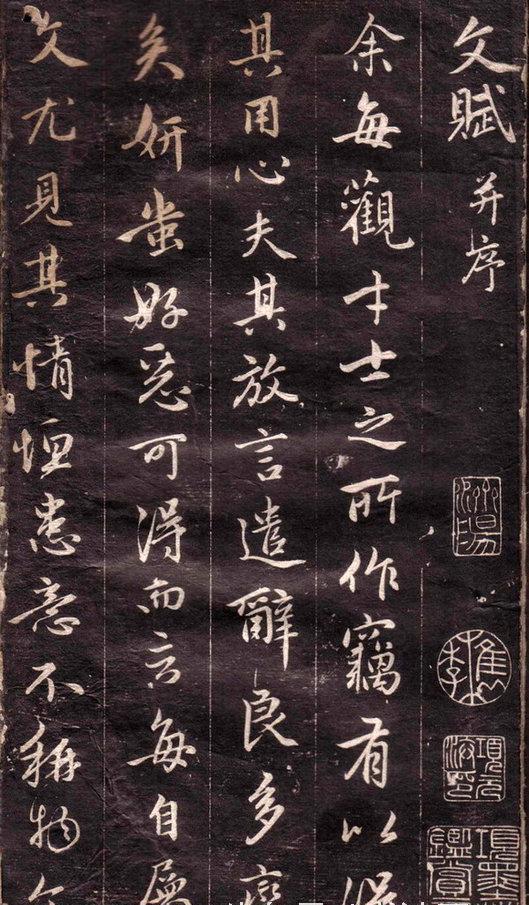 文賦
并序
余每觀才士之所作竊有以得
其用心夫其放言遣辭良多變
矣妍蚩好惡可得而言每自屬
文尤見其情恒患意不稱物
檇李